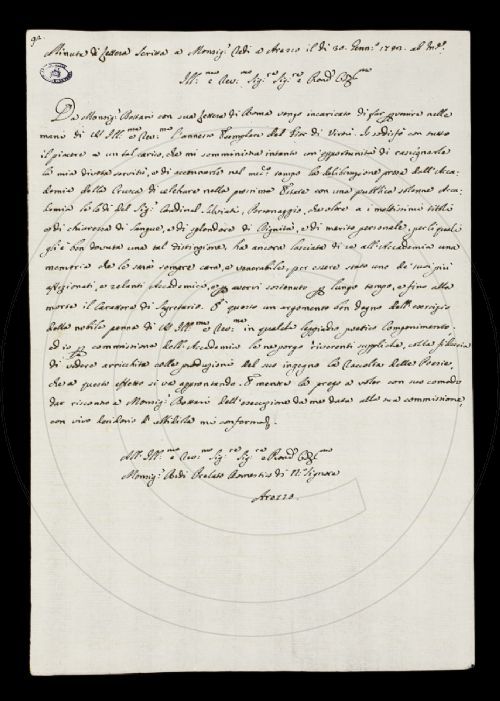 Minuta di Lettera Scritta a Monsig.r Redi a Arezzo il di 30. Genn.o 1741. ab Inc.e
Ill.mo e Rev.mo Sig.re Sig.re e Rone
Da Monsig.r Bottari con sua Lettera di Roma vengo incaricato di far pervenire nelle
mani di VS Ill.ma e Rev.ma l'annesso Esemplare del Fior di Virtù. Io sodisfò con tutto
il piacere a un tal carico, che mi somministra intanto un'opportunità di rassegnarle
la mia divota servitù, e di accennarle nel med.o tempo la deliberazione presa dall'Acca-
demia della Crusca di celebrare nella prossima Estate con una pubblica solenne Acca-
demia le lodi del Sig.r Cardinal Salviati, Personaggio, che oltre a moltissimi titoli
e di chiarezza di sangue, e di splendore di Dignità, e di merito personale, per li quali
gli è ben dovuta una tal distinzione, ha ancora lasciata di se all'Accademia una
memoria che le sarà sempre cara, e venerabile, per essere stato uno de' suoi più
affezionati, e zelanti Accademici, e per avervi sostenuto per lungo tempo, e fino alla
morte il Carattere di Segretario. È questo un argomento ben degno dell'esercizio
della nobile penna di VS Ill.ma e Rev.ma in qualche leggiadro poetico Componimento;
ed io per commissione dell'Accademia le ne porgo riverenti suppliche, colla fiducia
di vedere arricchita colla produzione del suo ingegno la Raccolta delle Poesie,
che a questo effetto si va approntando. E mentre la prego a voler con suo comodo
dar riscontro a Monsig.r Bottari dell'esecuzione da me data alla sua commissione,
con vivo desiderio d'ubbidirla mi confermo
All' Ill.mo e Rev.mo Sig.re Sig.re e Rone
Monsig.r Redi Prelato Domestico di N.ro Signore
Arezzo